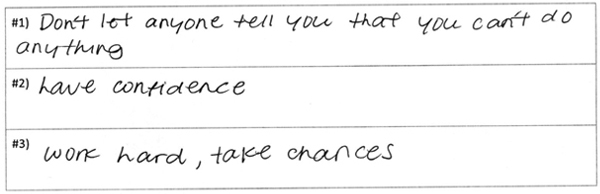 #1) Don't let anyone tell you that you can't do
anything
#2) have confidence
#3) work hard, take chances